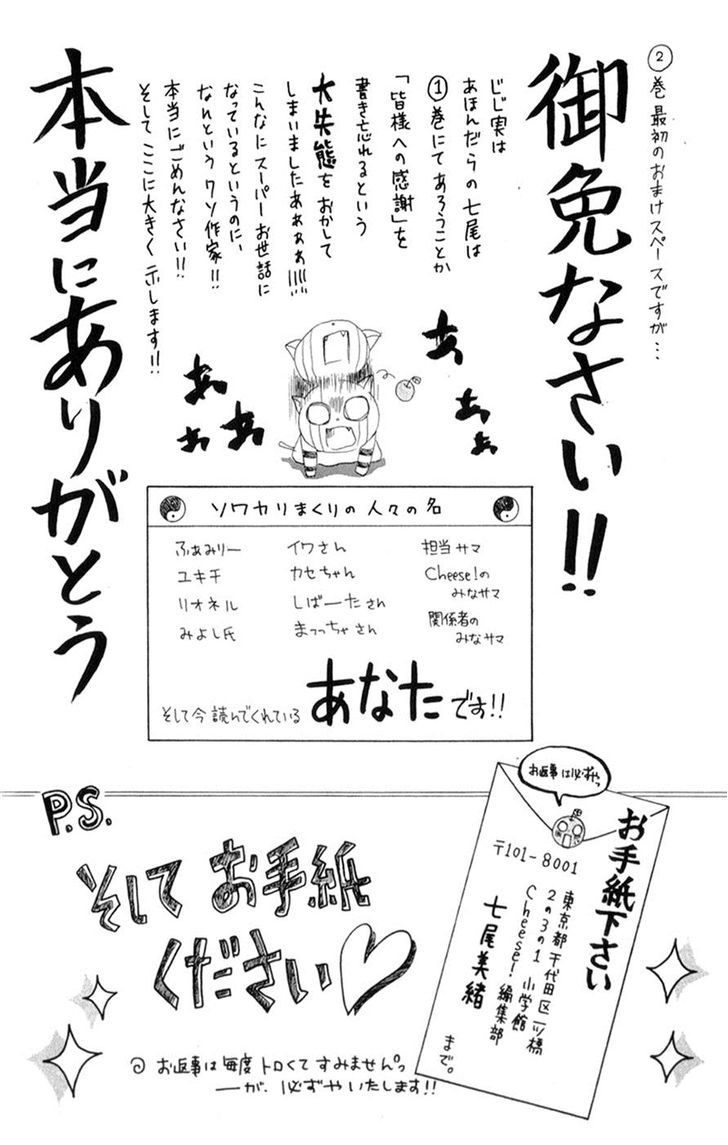 ②巻 最初のおまけスペースですが…
御免なさい!!
じじ実は
あほんだらの七尾は
①巻にてあろうことか
「皆様への感謝」を
書き忘れるという
大失態をおかして
しまいましたあぁぁぁ!!!!!
こんなにスーパーお世話に
なっているというのに、
なんというクソ作家!!
本当にごめんなさい!!
そして ここに大きく 示します!!
本当にありがとう
あぁ
あぁ
ああ
あぁ
ぁぁ
ソワカリまくりの人々の名
ふぁみりー
ユキチ
リオネル
みよし氏
イワさん
カセちゃん
しばーたさん
まっっちゃさん
担当サマ
Cheese!の
みなサマ
関係者の
みなサマ
そして今 読んでくれている あなたです!!
P.S.
そして お手紙
ください♡
お返事は必ずやっ
お手紙下さい
〒101-8001
東京都千代田区一ツ橋
2の3の1 小学館
Cheese! 編集部
七尾美緒
まで。
お返事は毎度 トロくて すみませんっ
——が、必ずや いたします!!